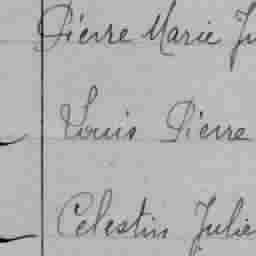 Pierre Marie Ju
Louis Pierre
Celestin Julie